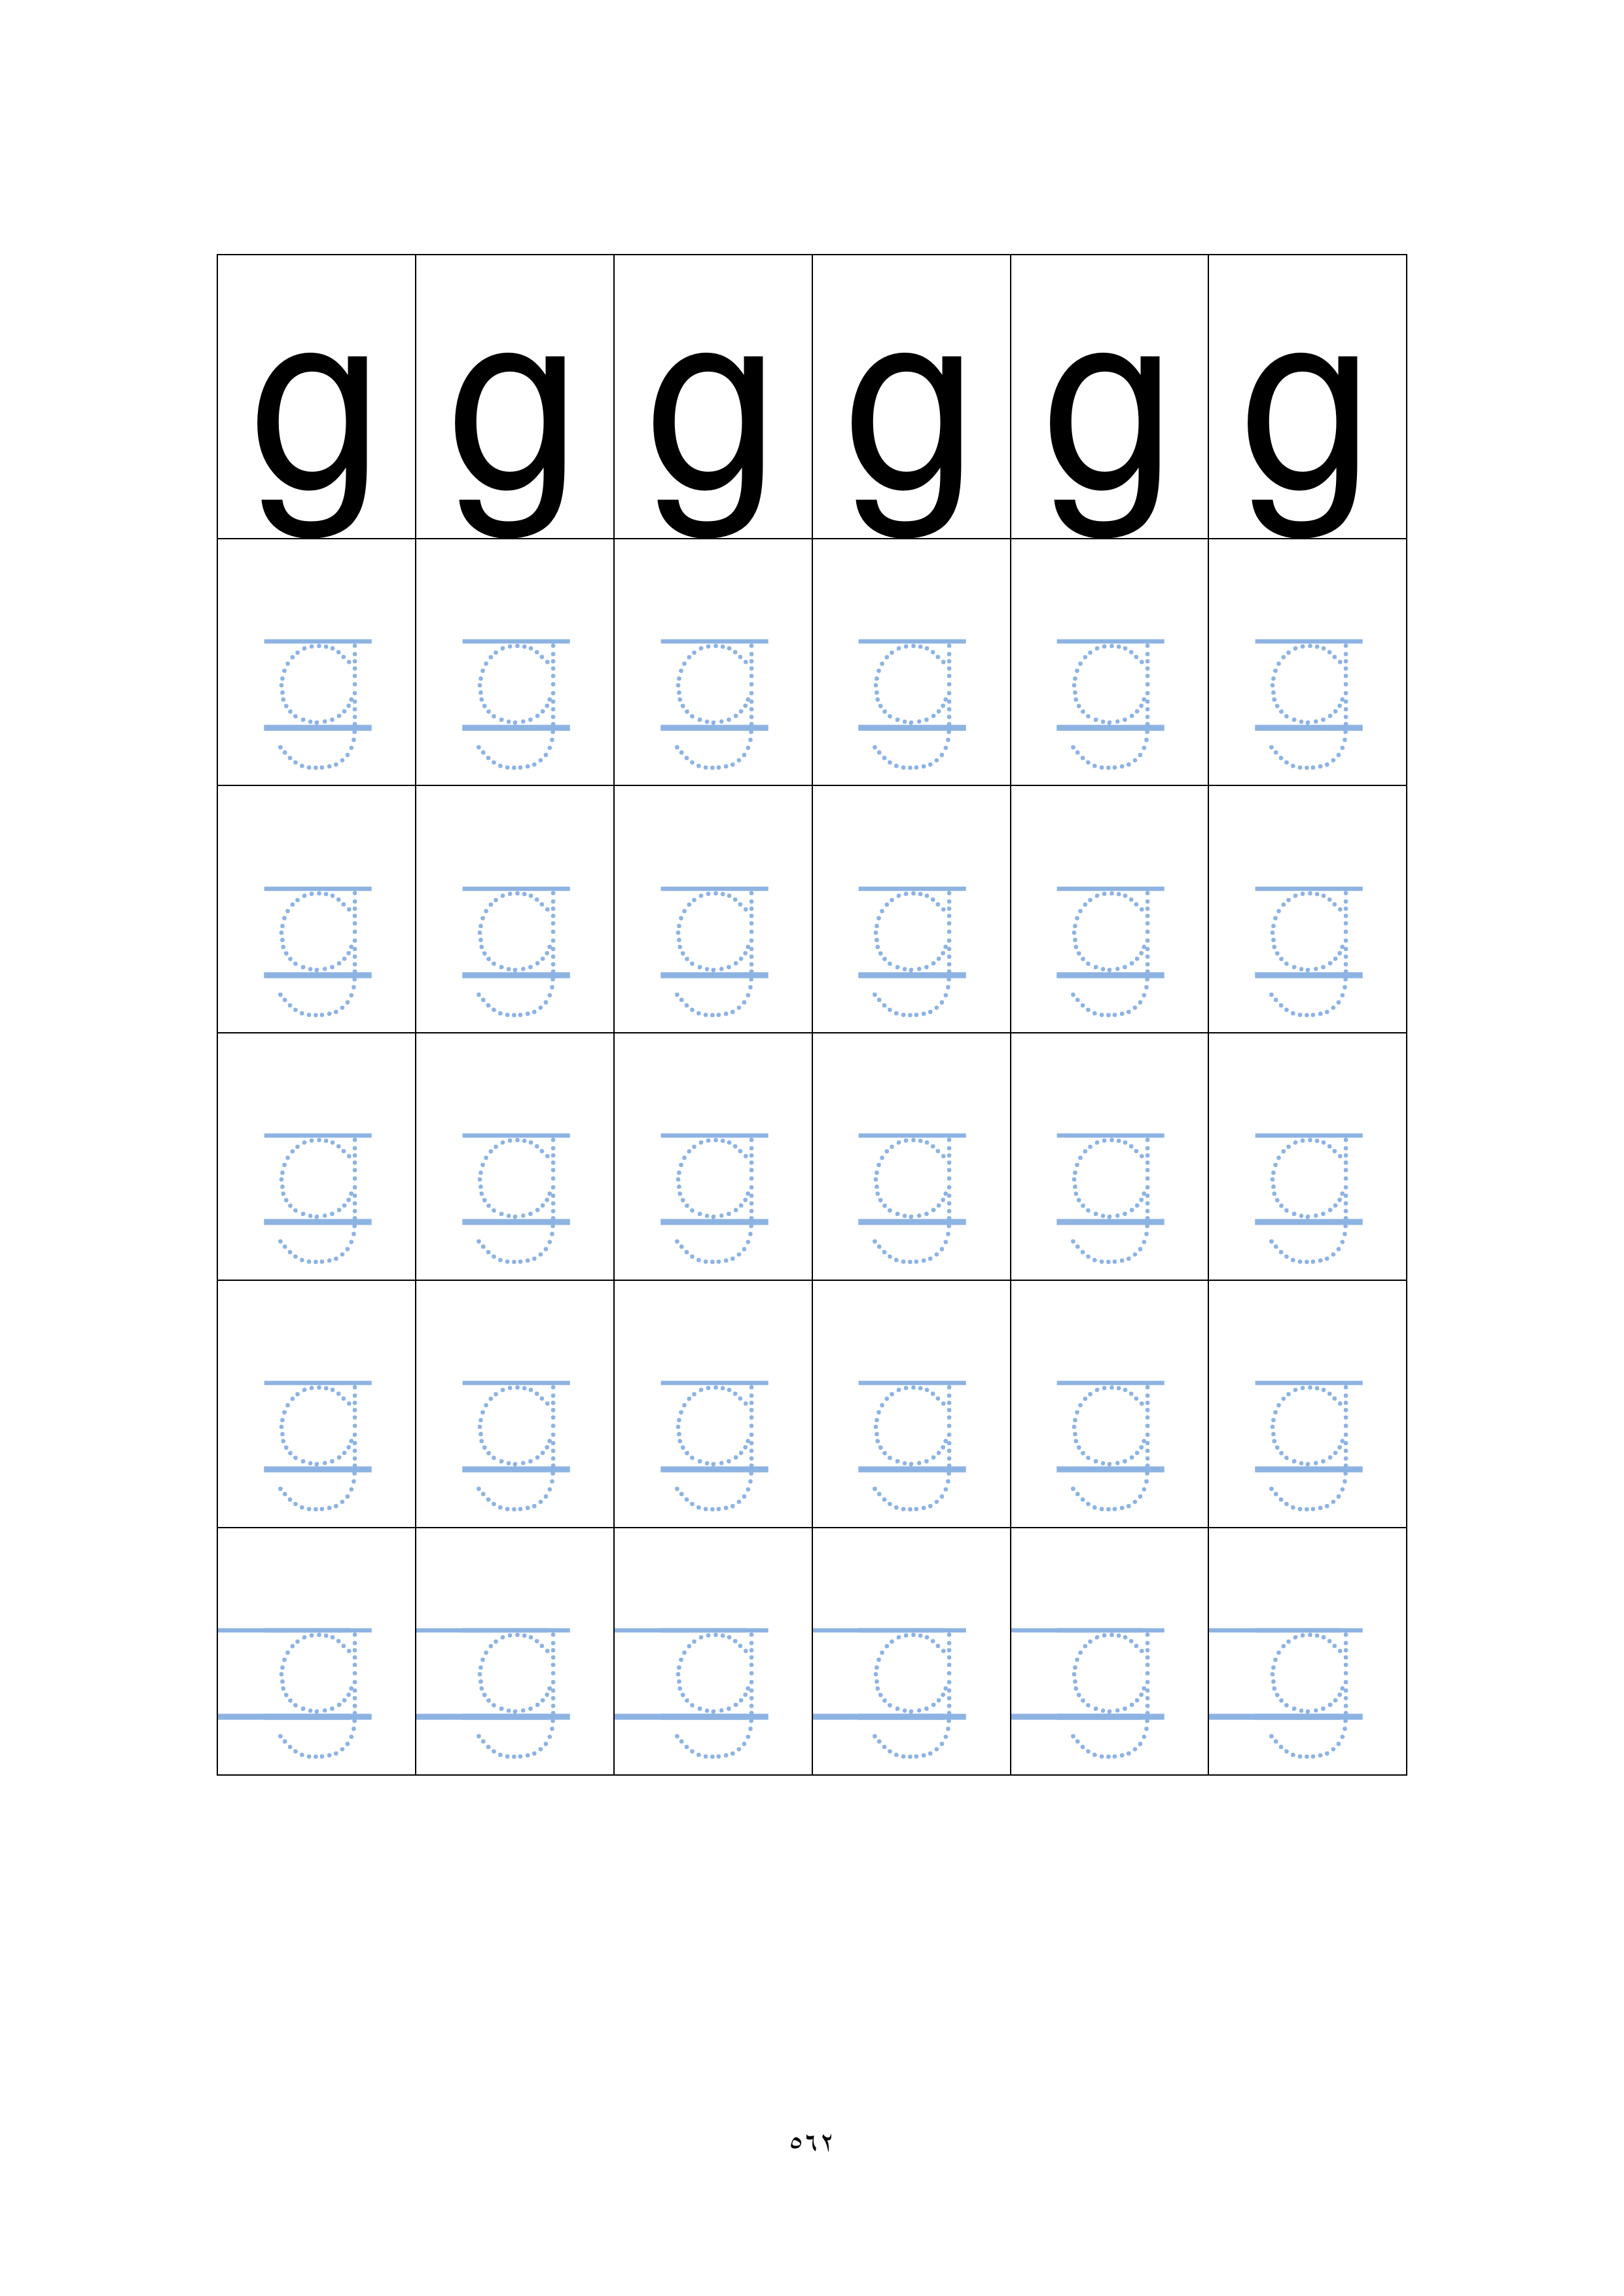 g g g g g g
g g g g g g
g g g g g g
g g g g g g
g g g g g g
g g g g g g
٥٦٢